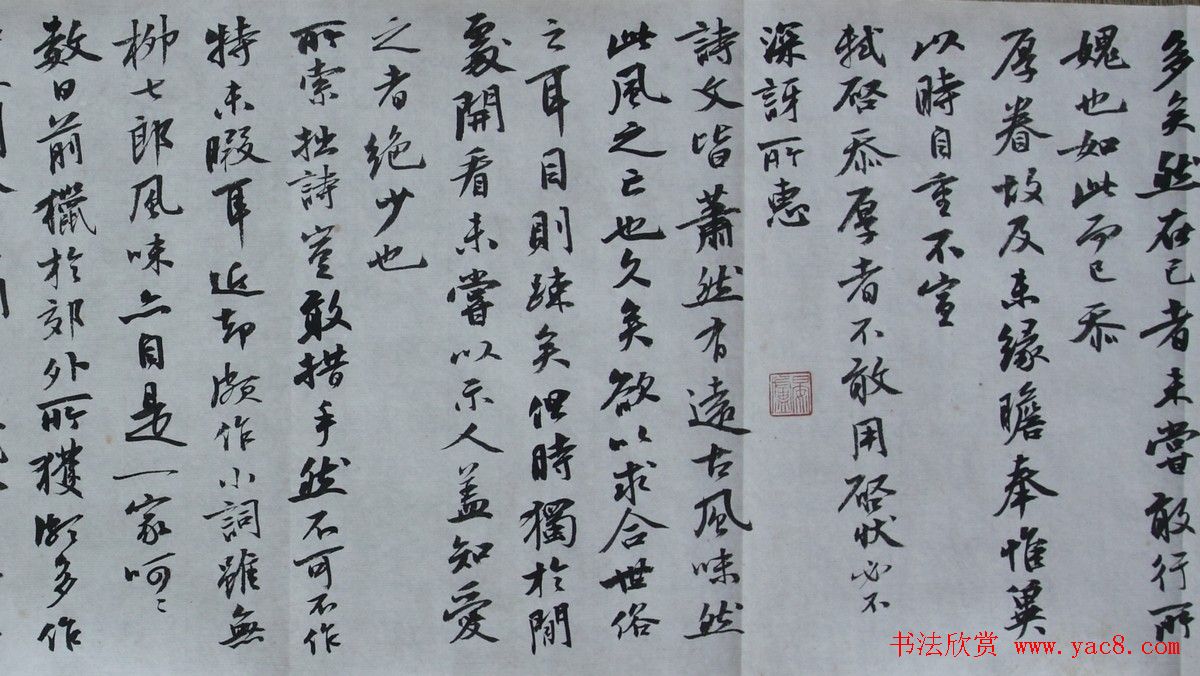 多矣然在己者未嘗敢行所
媿也如此而已忝
厚眷故及未緣瞻奉惟冀
以時自重不宣
軾啓忝厚者不敢用啓状必不
深訝所惠
詩文皆蕭然有遠古風味然
此風之亡也久矣欲以求合世俗
之耳目則疎矣但時獨於閒
處開看未嘗以示人蓋知愛
之者絶少也
所索拙詩豈敢措手然不可不作
特未暇耳近却頗作小詞雖無
柳七郎風味亦自是一家呵ミ
數日前獵於郊外所獲頗多作
书法欣赏 www.yac8.com